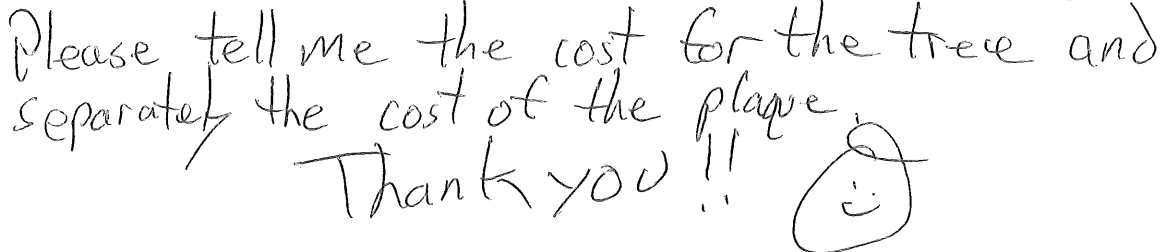 Please tell me the cost for the tree and
separately the cost of the plaque.
Thank you!!